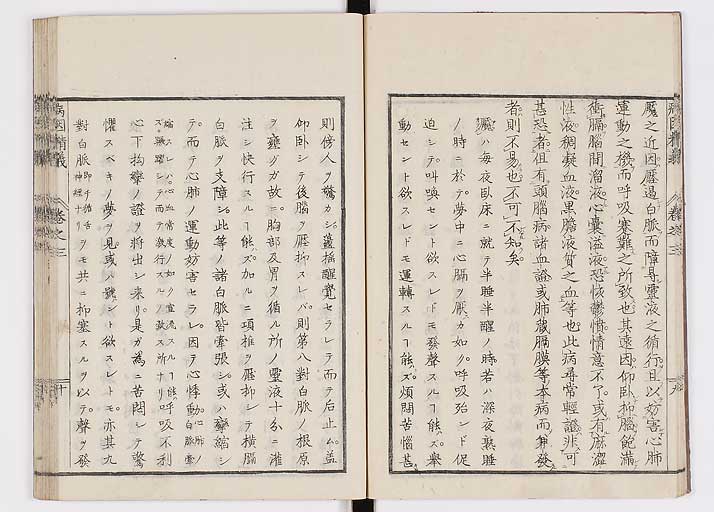 魘之近因壓遏白脈而障㝵靈液之循行且以妨害心肺
運動之機而呼吸塞難之所致也其遠因仰臥抑腦飽滿
衝膈腦間溜液心囊溢液恐恢鬱憤情意不了或有麻澀
性液稠凝血液黑膽液質之血等也此病尋常輕證非可
甚恐者但有頭腦病諸血證或肺蔵膈膜等本病而兼發
者則不易也不可不知矣
魘ハ每夜臥床ニ就テ半睡半醒ノ時若ハ深夜熟睡
ノ時ニ於テ夢中ニ心膈ヲ壓カ如ク呼吸殆ンド促
迫シテ叫喚セント欲スレドモ發聲スルヿ能ズ舉
動セント欲スレドモ運轉スルヿ能ズ煩悶苦惱甚
病因精義
卷之三
九
則傍人ヲ驚カシ蓋搖醒覺セラレテ而テ后止ム蓋
仰臥シテ後腦ヲ壓抑スレバ則第八對白脈ノ根原
ヲ壅ガ故ニ胸部及胃ヲ循ル所ノ靈液十分ニ灌
注シ快行スルヿ能ズ加ルニ項椎ヲ壓抑シテ橫膈
白脈ヲ支障シ此等ノ諸白脈皆牽張シ或ハ攣縮シ
テ而テ心肺ノ運動妨害セラレ因テ心悸動心肺ノ白脈攣
縮スレバ心血常度ノ如ク宣流スルヿ能ズ躑躅シテ而テ激行スルノ致ス所ナリ呼吸不利
心下拘攣ノ證ヲ將出シ來リ是ガ為ニ苦悶シテ驚
懼スベキノ夢ヲ見或ハ號ント欲スレトモ亦其九
對白脈即チ循舌神經ナリヲモ共ニ抑塞スルヲ以テ聲ヲ發
病因精義
卷之三
十